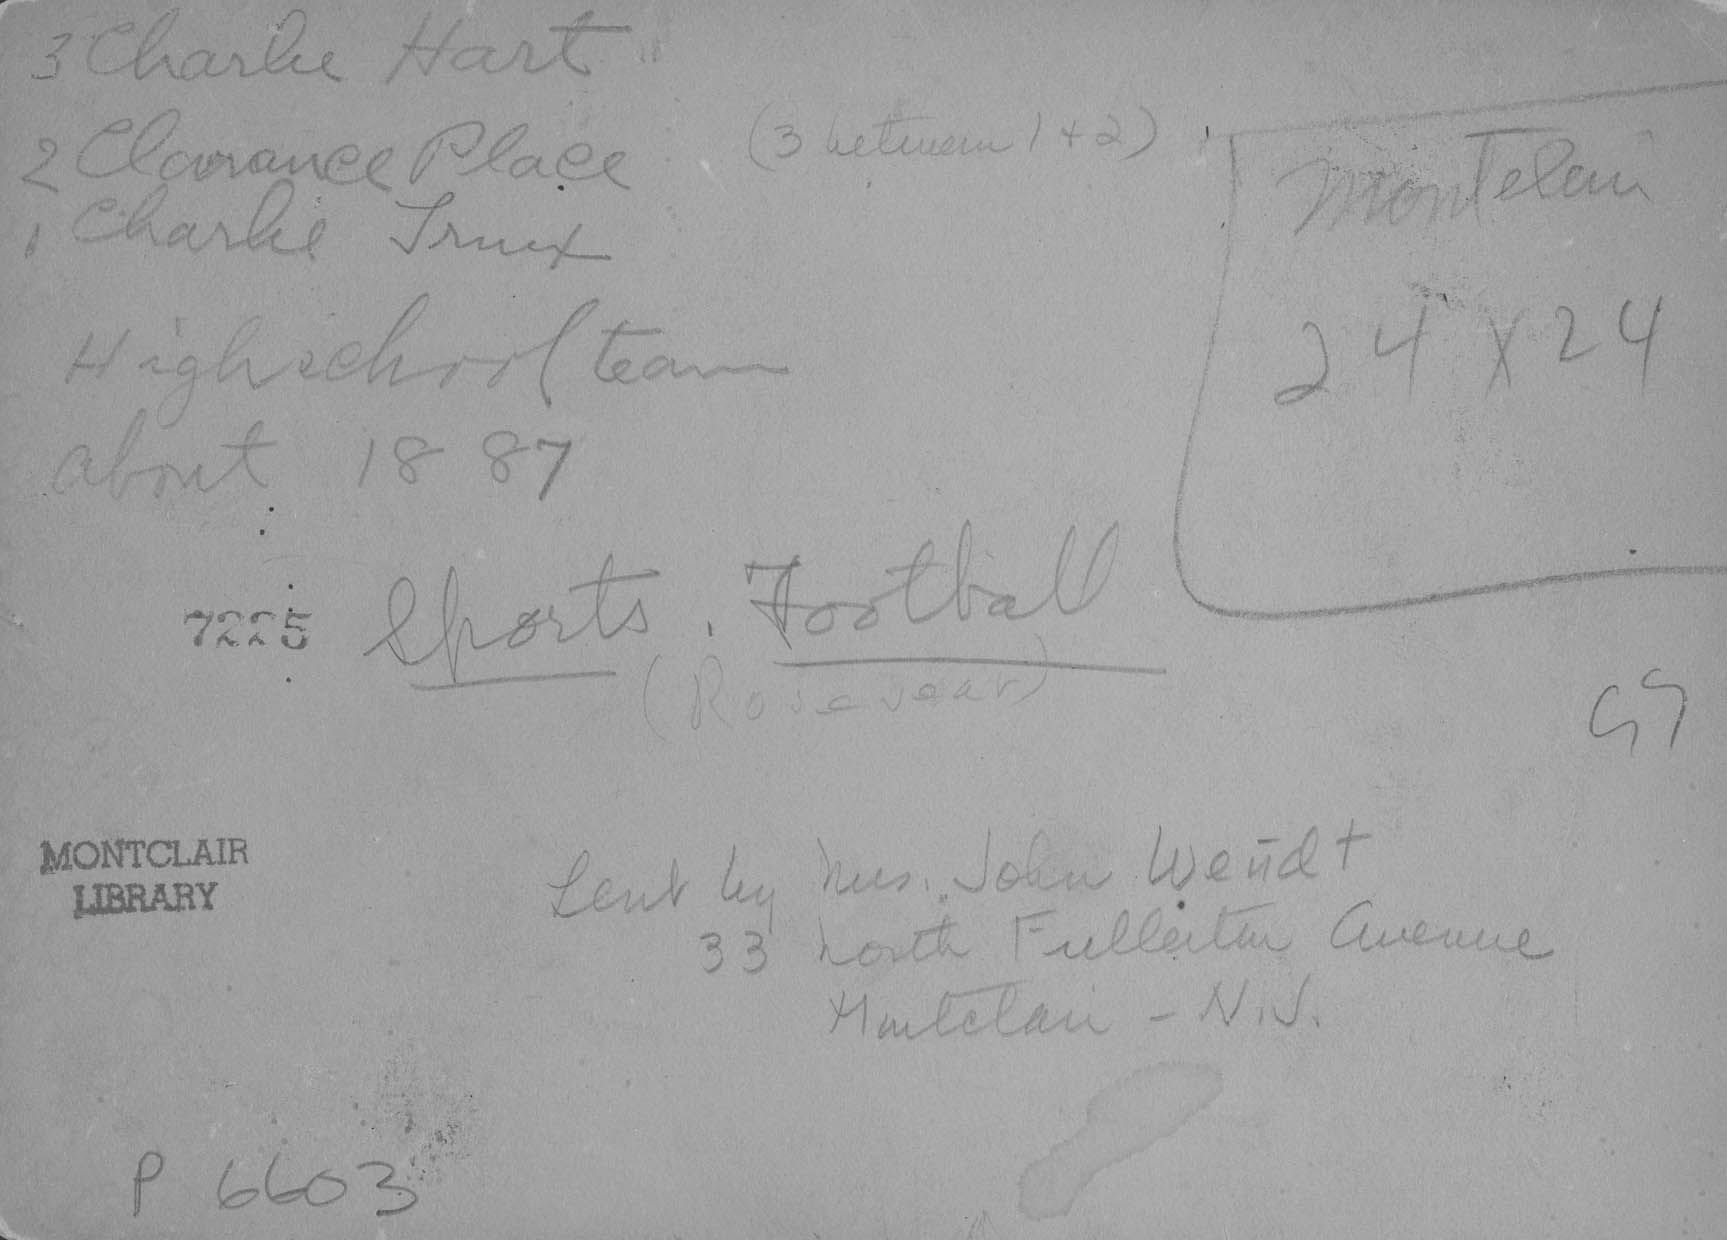 3 Charlie Hart "
2 Clarance Place (3 between 1 + 2)
1 Charlie Trux
Montclair
24 x 24
Highschool team
about 1887
7225 Sports. Football
(Rosevear)
MONTCLAIR
LIBRARY
Lent by Mrs. John Wendt
33 North Fullerton Avenue
Montclair - N.J.
P 6603